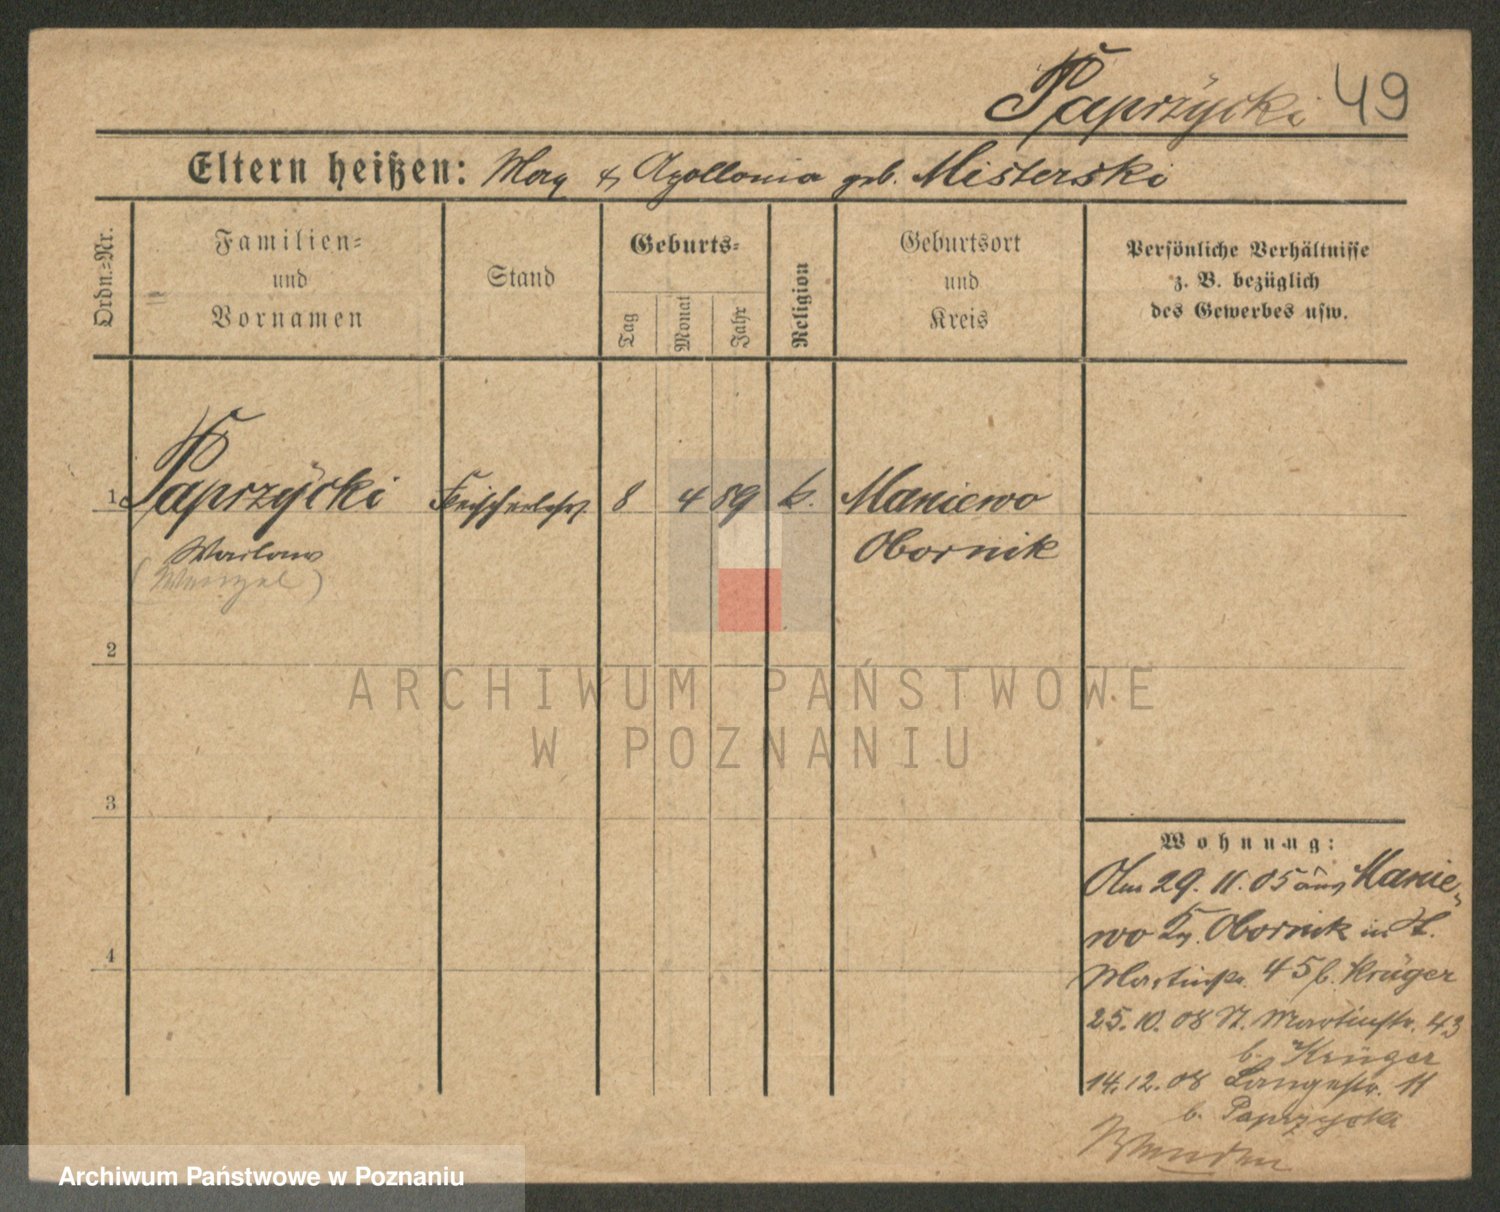 Paprzycki 49
Eltern heißen: & Apollonia geb. Misterski
Ordn.=Nr.
Familien=
und
Vornamen
Stand
Geburts=
Tag
Monat
Jahr
Religion
Geburtsort
und
Kreis
Persönliche Verhältnisse
z. B. bezüglich
des Gewerbes usw.
1 Paprzycki 8 4 89 k. Maniewo
Obornik
(Wenzel)
2
3
4
Wohnung:
Am 29. 11. 05 aus Manie-
wo Kr. Obornik in St.
Martinstr. 45 b. Krüger
25. 10. 08 St. Martinstr. 43
b. Krüger
14. 12. 08 Langestr. 11
b. Paprzycki
ARCHIWUM PAŃSTWOWE
W POZNANIU
Archiwum Państwowe w Poznaniu